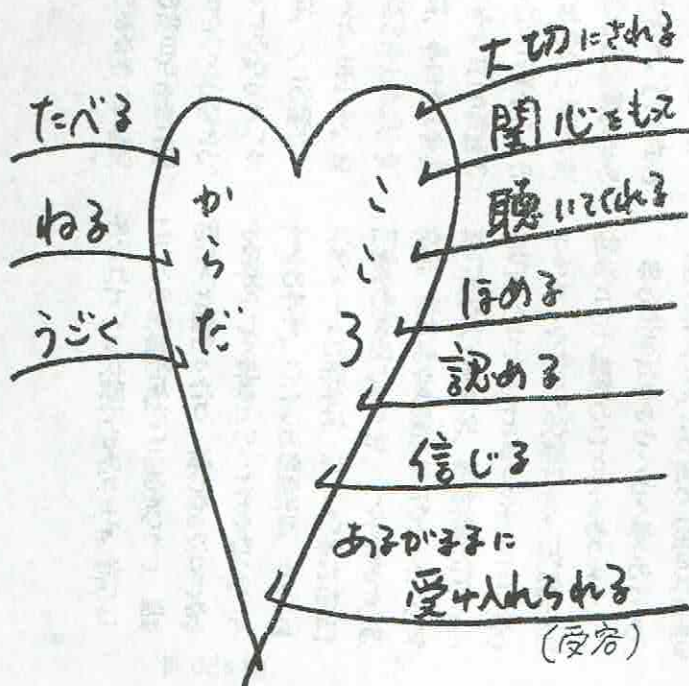 たべる
ねる
うごく
からだ
こころ
大切にされる
関心をもって
聴いてくれる
ほめる
認める
信じる
あるがままに
受け入れられる
(受容)